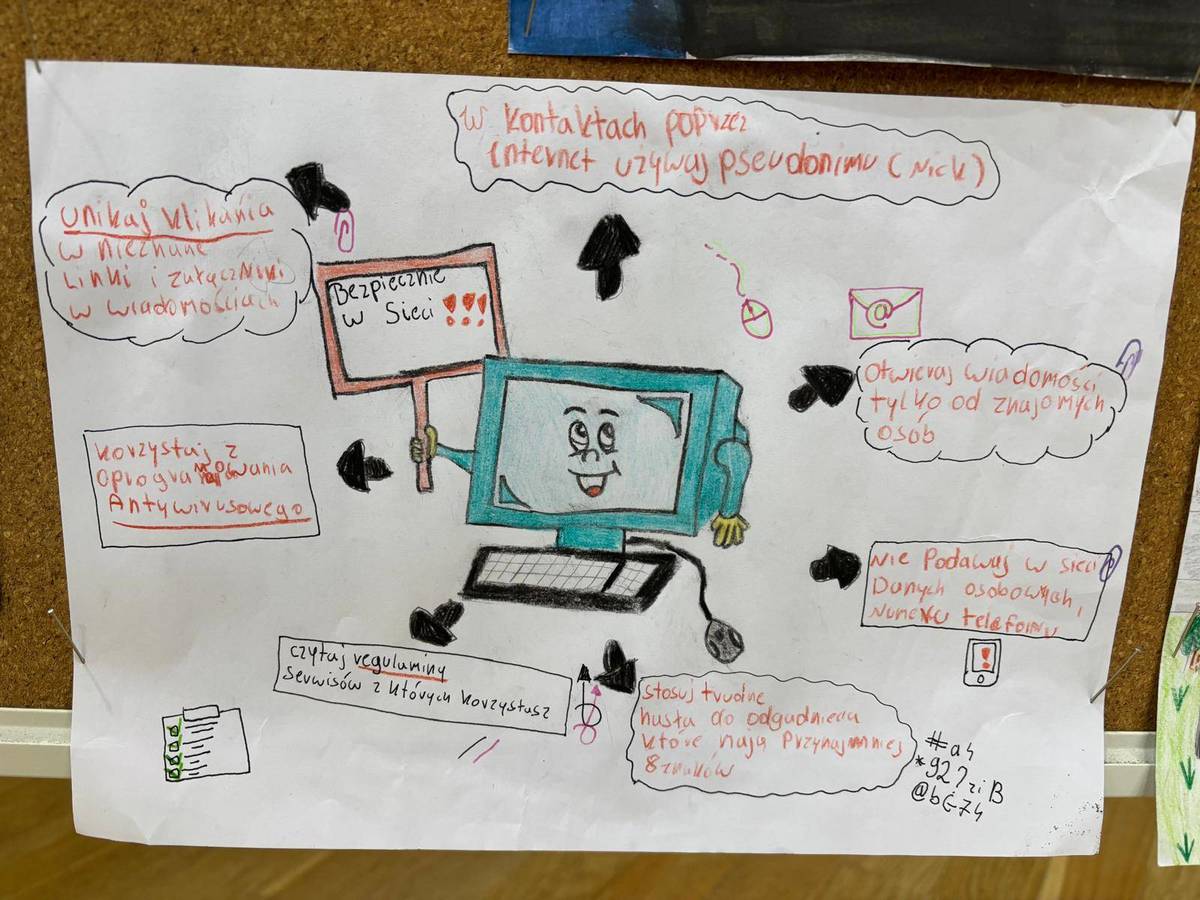 W kontaktach poprzez
Internet używaj pseudonimu (Nick)
Unikaj klikania
w nieznane
Linki i załączniki
w wiadomościach
Bezpiecznie
w Sieci !!!
@
Otwieraj wiadomości
tylko od znajomych
osób
korzystaj z
oprogramowania
Antywirusowego
Nie Podawaj w sieci
Danych osobowych,
numeru telefonu
!
czytaj regulaminy
serwisów z których korzystasz
stosuj trudne
hasła do odgadnięcia
które mają Przynajmniej
8 znaków
#a4
B